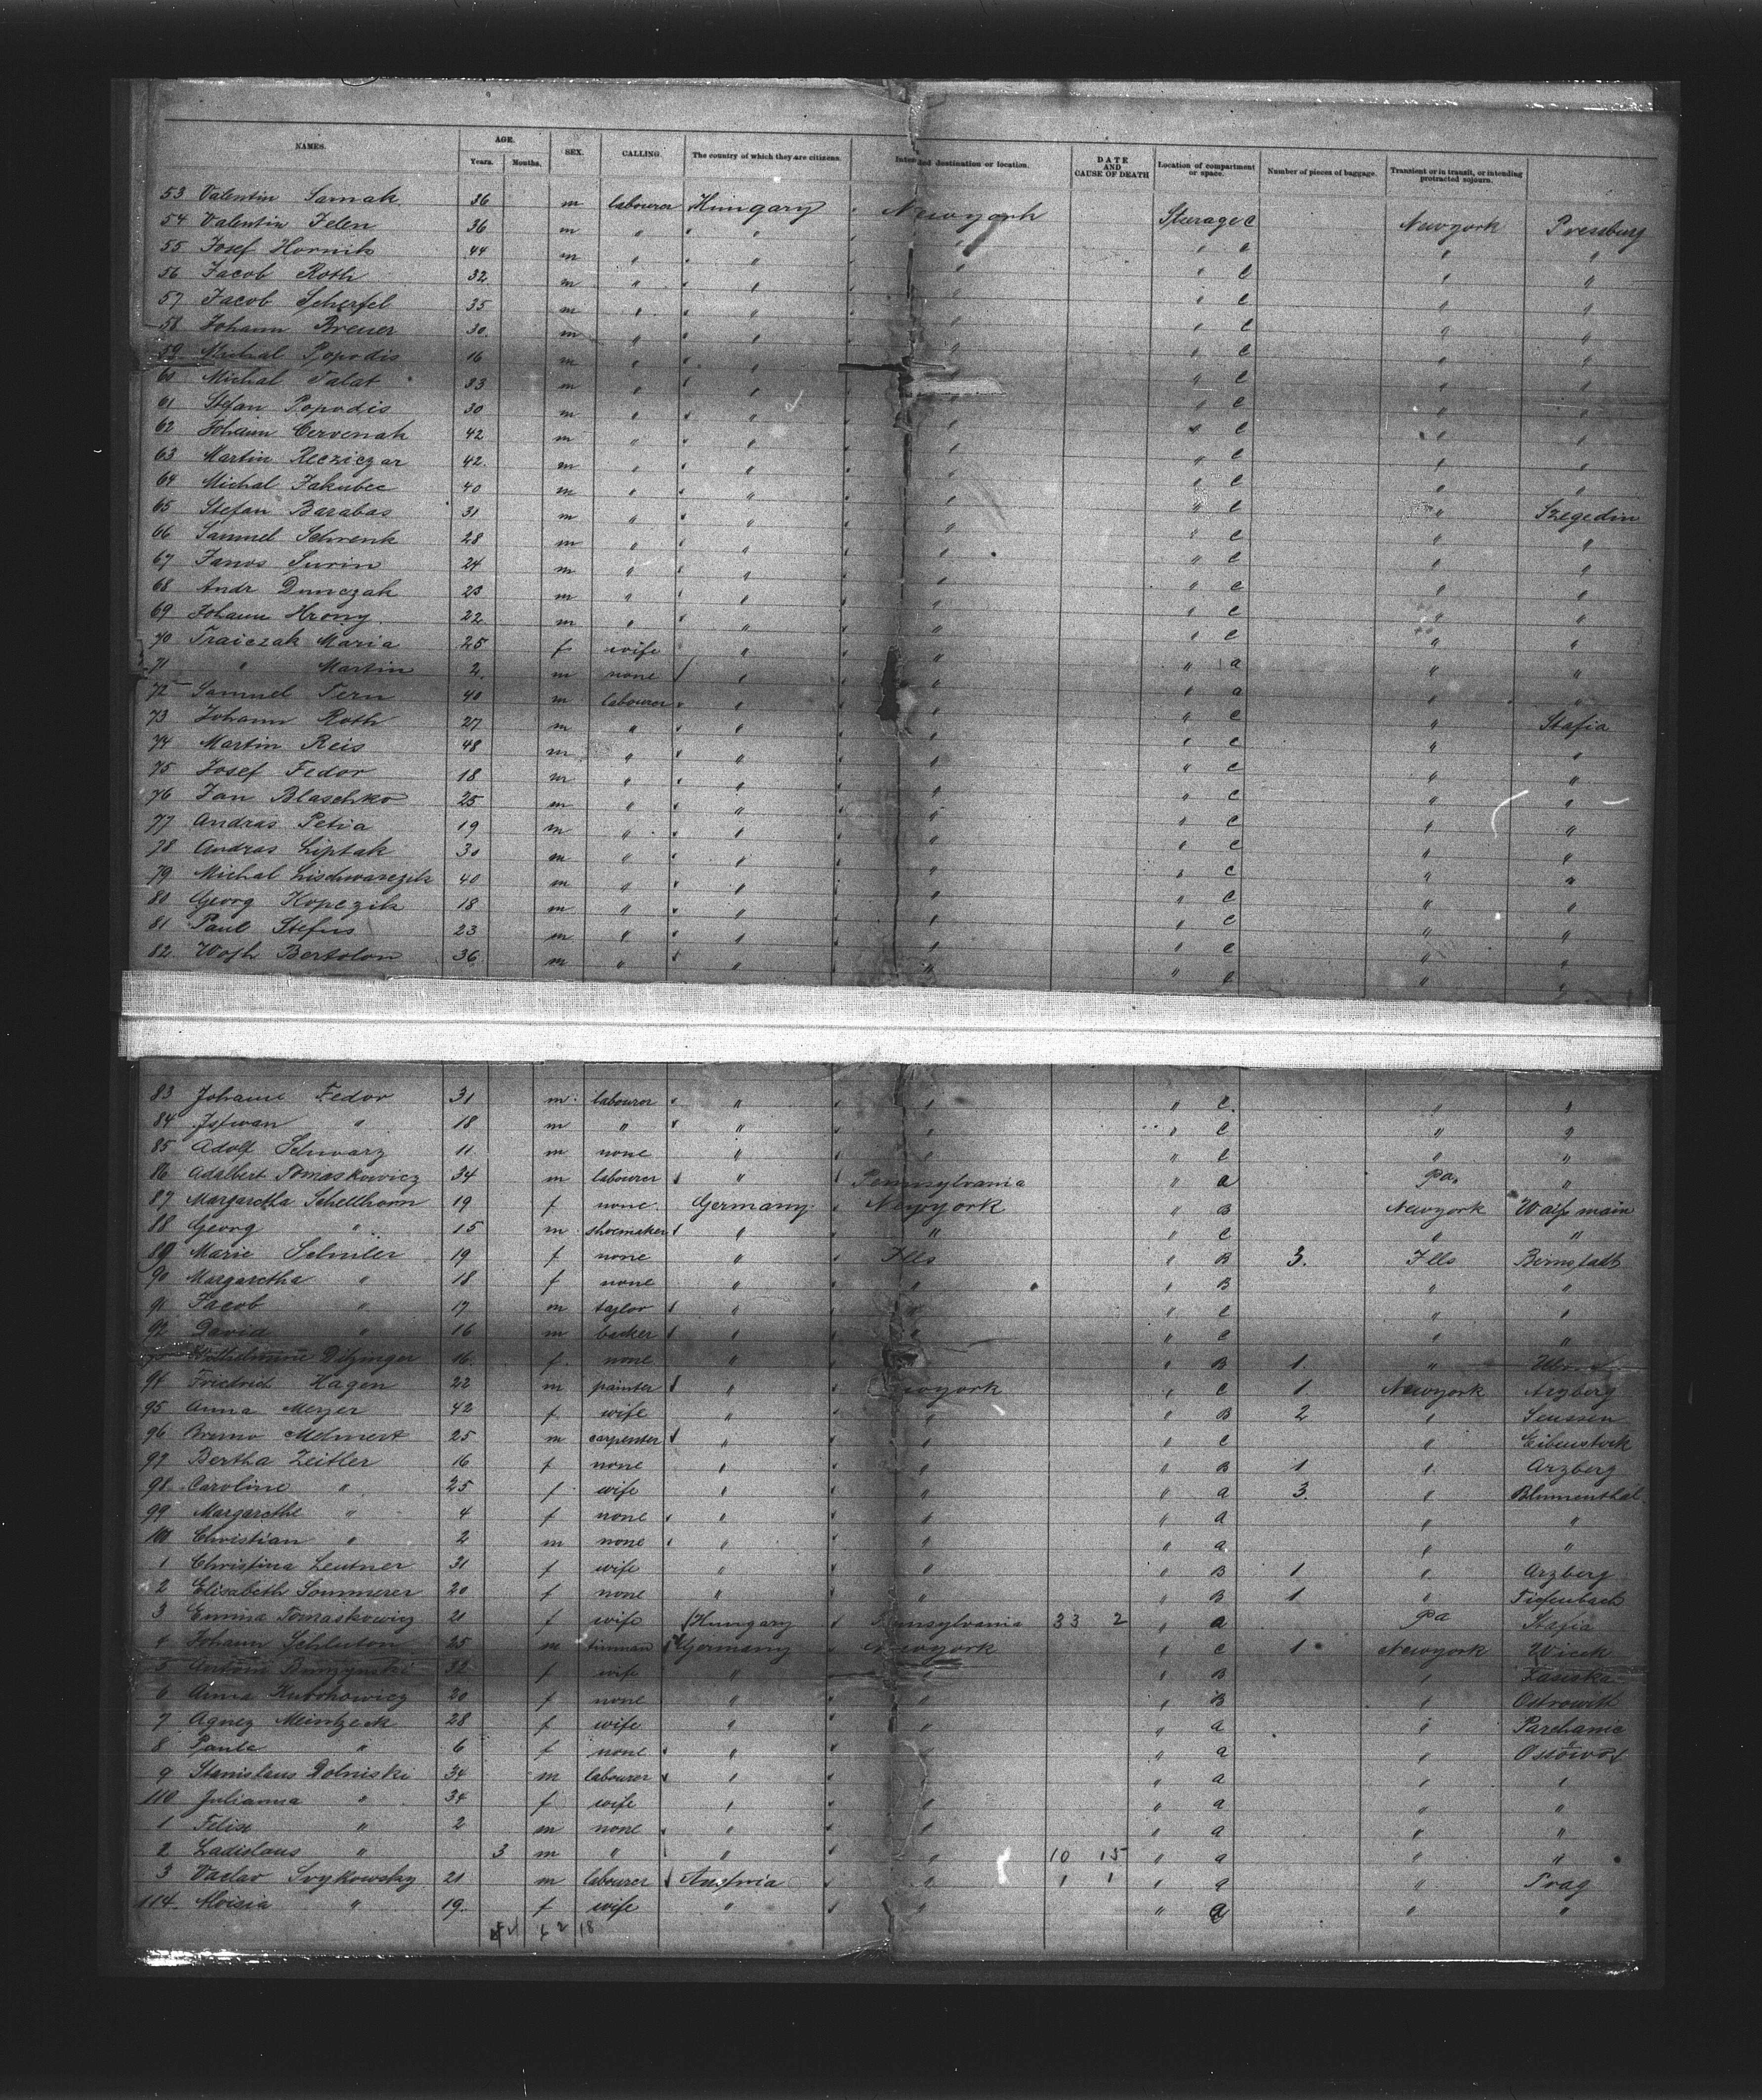 NAMES. AGE. Years. Months. SEX. CALLING. The country of which they are citizens. Intended destination or location. DATE AND CAUSE OF DEATH Location of compartment or space. Number of pieces of baggage. Transient or in transit, or intending protracted sojourn.
53 Valentin Samak 36 m labourer Hungary Newyork Sturage C Newyork Pressburg
54 Valentin Jelen 36 m " " " " " C " "
55 Josef Hornik 44 m " " " " C " "
56 Jacob Roth 32 m " " " " C " "
57 Jacob Scherfel 35 m " " " " C " "
58 Johann Breuer 30 m " " " " C " "
59 Michal Popodis 16 m " " " " C " "
60 Michal Talat 33 m " " " " C " "
61 Stefan Popodis 30 m " " " " C " "
62 Johann Cervenak 42 m " " " " C " "
63 Martin Recziczar 42 m " " " " C " "
64 Michal Jakubec 40 m " " " " C " "
65 Stefan Barabas 31 m " " " " C " Szegedin
66 Samuel Schrenk 28 m " " " " C " "
67 Janos Surin 24 m " " " " C " "
68 Andr Dunczak 23 m " " " " C " "
69 Johann Hrony 22 m " " " " C " "
70 Traiczak Maria 25 f wife " " " a " "
71 " Martin 2 m none " " " a " "
72 Samuel Tern 40 m labourer " " " C " Stafia
73 Johann Roth 27 m " " " " C " "
74 Martin Reis 48 m " " " " C " "
75 Josef Fedor 18 m " " " " C " "
76 Jan Blaschko 25 m " " " " C " "
77 Andras Petia 19 m " " " " C " "
78 Andras Liptak 30 m " " " " C " "
79 Michal Lischwarezik 40 m " " " " C " "
80 Georg Kopczik 18 m " " " " C " "
81 Paul Stefus 23 m " " " " C " "
82 Wojh Bertolon 36 m " " " " C " "
83 Johann Fedor 31 m labourer " " " C " "
84 Istwan " 18 m " " " " C " "
85 Adolf Schwarz 11 m none " " " C " "
86 Adalbert Tomaskowicz 34 m labourer " Pennsylvania " a Pa. "
87 Margaretha Schellhorn 19 f none Germany Newyork " B Newyork
88 Georg " 15 m shoemaker " " " C " "
89 Marie Schuler 19 f none " Ills " B 3. Ills Bernstadt
90 Margaretha " 18 f none " " " B " "
91 Jacob " 17 m taylor " " " C " "
92 David " 16 m backer " " " C " "
Wilhelmine Ditzinger 16 f none " " " B 1. "
94 Friedrich Hagen 22 m painter " Newyork " C 1 Newyork Arzberg
95 Anna Meyer 42 f wife " " " B 2 " Seussen
96 Bruno Mehnert 25 m carpenter " " " C " Eibenstock
97 Bertha Zeitler 16 f none " " " B 1 " Arzberg
98 Caroline " 25 f wife " " " a 3. " Blumenthal
99 Margarethe " 4 f none " " " a " "
100 Christian " 2 m none " " " a " "
1 Christina Leutner 31 f wife " " " B 1 " Arzberg
2 Elisabeth Sommerer 20 f none " " " B 1 " Tiefenbach
3 Emma Tomaskowicz 21 f wife Hungary Pennsylvania 33 2 " a Pa Stafia
4 Johann Schluton 25 m tinman Germany Newyork " C 1 Newyork
5 32 f wife " " " B "
6 Anna 20 f none " " " B " Ostrowitt
7 Agnez Meintzeck 28 f wife " " " a " Parchanie
8 Paula " 6 f none " " " a "
9 Stanislaus Dolniski 34 m labourer " " " a " "
110 Julianna " 34 f wife " " " a " "
1 Felix " 2 m none " " " a " "
2 Ladislaus " 3 m " " " 10 15 " a " "
3 Vaclav Svykowsky 21 m labourer Austria " 1 1 " a " Prag
114. Aloisia " 19. f wife " " " a " "